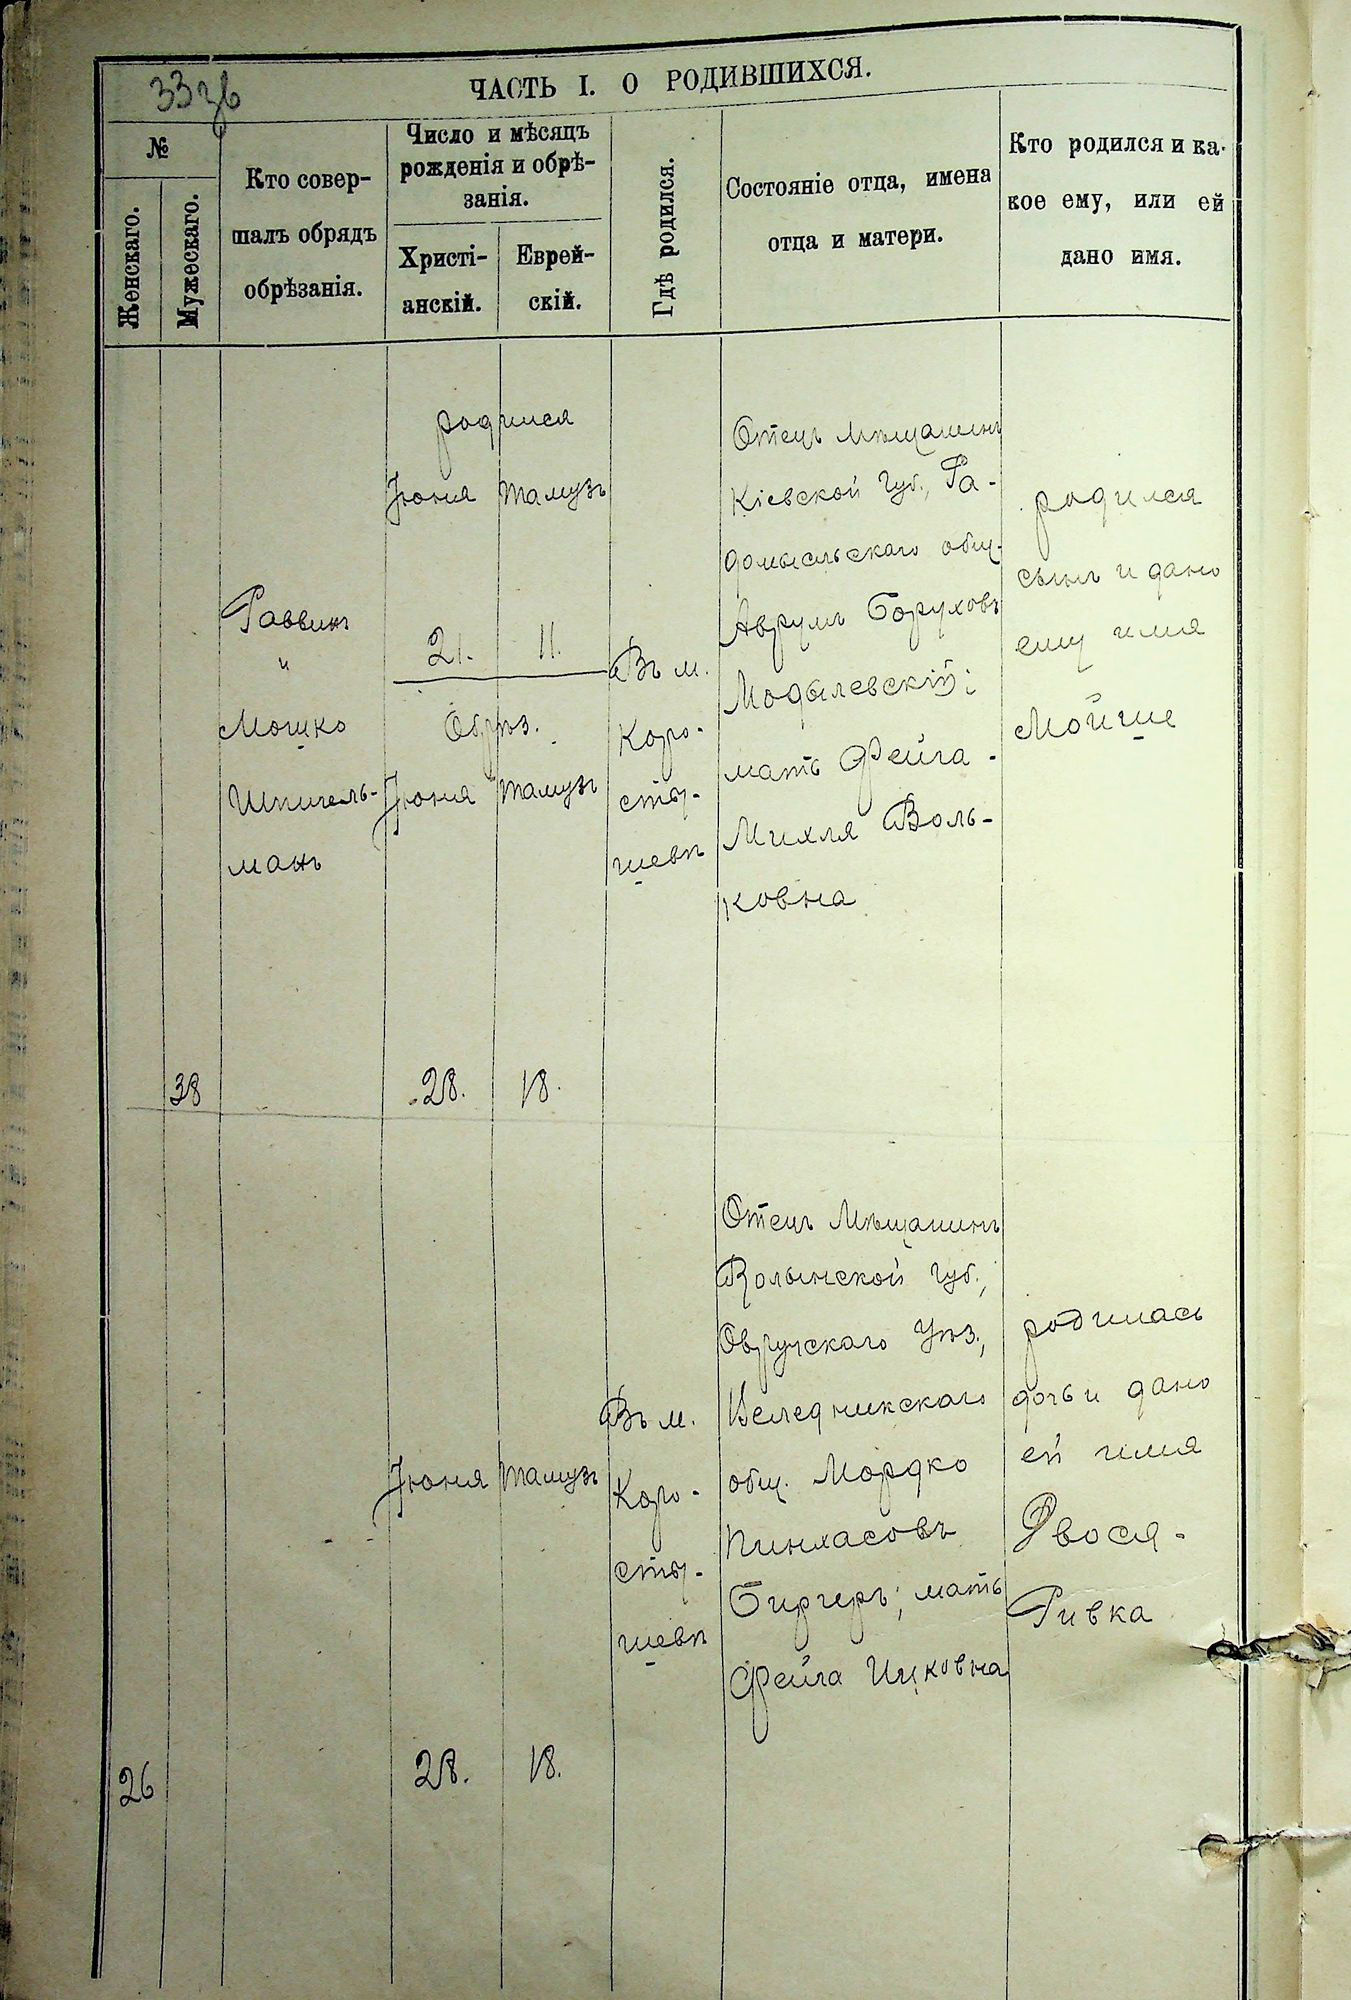 33 зв
ЧАСТЬ I. О РОДИВШИХСЯ.
№
Женскаго.
Мужескаго.
Кто совер-
шалъ обрядъ
обрѣзанія.
Число и мѣсяцъ
рожденія и обрѣ-
занія.
Христі-
анскій.
Еврей-
скій.
Гдѣ родился.
Состояніе отца, имена
отца и матери.
Кто родился и ка-
кое ему, или ей
дано имя.
38
Раввинъ
и
Мошко
Шпигель-
манъ
родился
Іюня Тамузъ
21. 11.
Обрѣз.
Іюня Тамузъ
28. 18.
Въ м.
Коро-
сты-
шевѣ
Отецъ Мѣщанинъ
Кіевской Губ., Ра-
домысльскаго общ.
Аврумъ Боруховъ
Модылевскій;
мать Фейга-
Михля Воль-
ковна
родился
сынъ и дано
ему имя
Мойше
26
Іюня Тамузъ
28. 18.
Въ м.
Коро-
сты-
шевѣ
Отецъ Мѣщанинъ
Волынской Губ.,
Овручскаго Уѣз.,
Веледникскаго
общ. Мордко
Пинхасовъ
Биргеръ; мать
Фейга Ицковна
родилась
дочь и дано
ей имя
Двося-
Ривка